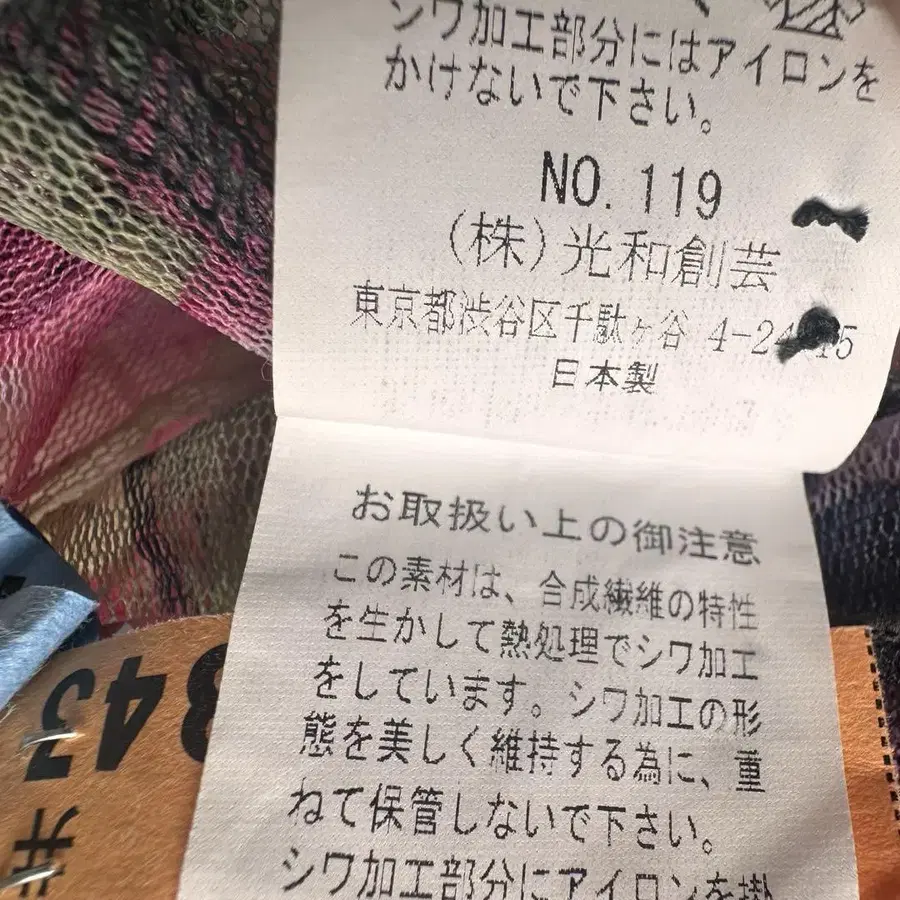 シワ加工部分にはアイロンを
かけないで下さい。
NO. 119
(株)光和創芸
東京都渋谷区千駄ヶ谷 4-24-15
日本製
お取扱い上の御注意
この素材は、合成繊維の特性
を生かして熱処理でシワ加工
をしています。シワ加工の形
態を美しく維持する為に、重
ねて保管しないで下さい。
シワ加工部分にアイロンを掛
843
井